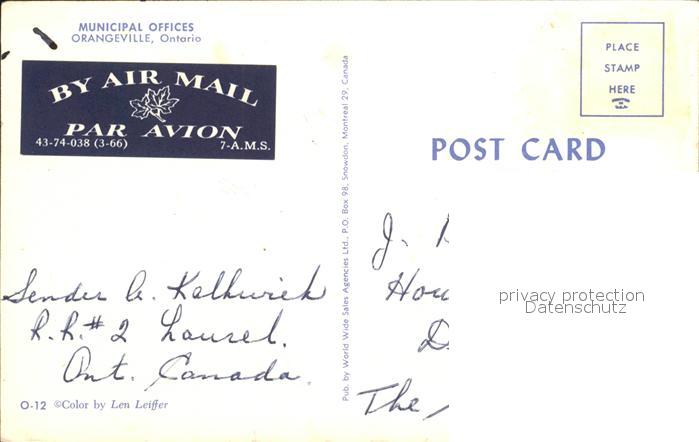 MUNICIPAL OFFICES
ORANGEVILLE, Ontario
BY AIR MAIL
PAR AVION
43-74-038 (3-66) 7-A.M.S.
Sender A. Kalkwiek
R.R.#2 Laurel.
Ont. Canada.
O-12 ©Color by Len Leiffer
Pub. by World Wide Sales Agencies Ltd., P.O. Box 98, Snowdon, Montreal 29, Canada
PLACE
STAMP
HERE
POST CARD
J.
privacy protection
Datenschutz
The